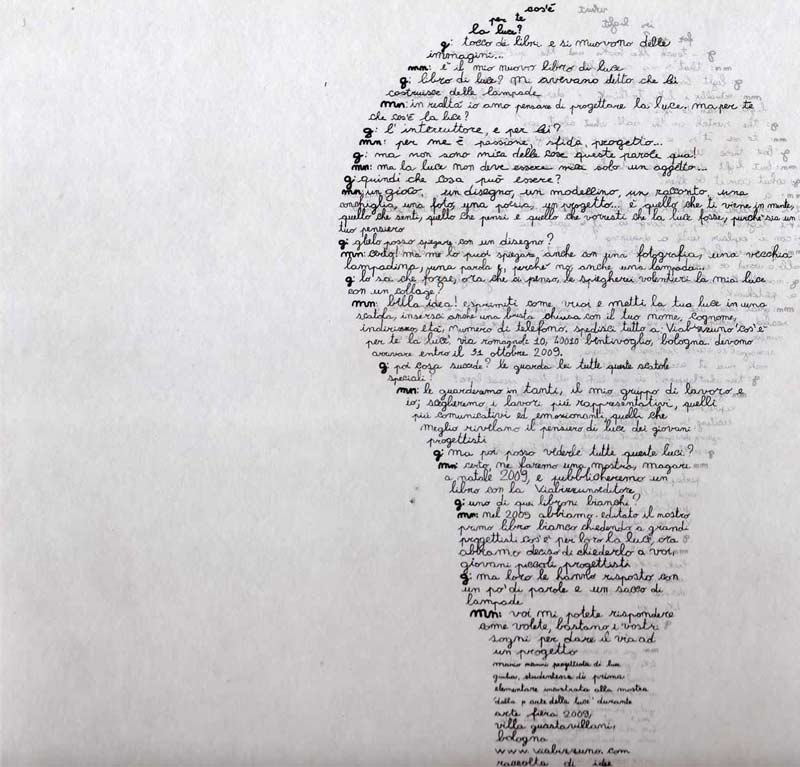 cos'è
per te
la luce?
g: tocco di libri e si muovono delle
immagini...
mn: è il mio nuovo libro di luce
g: libro di luce? mi avevano detto che lei
costruisce delle lampade
mn: in realtà io amo pensare di progettare la luce. ma per te
che cos'è la luce?
g: l'interruttore, e per lei?
mn: per me è passione, sfida, progetto...
g: ma non sono mica delle cose queste parole qua!
mn: ma la luce non deve essere mica solo un oggetto...
g: quindi che cosa può essere?
mn: un gioco, un disegno, un modellino, un racconto, una
conchiglia, una foto, una poesia, un progetto... è quello che ti viene in mente,
quello che senti, quello che pensi e quello che vorresti che la luce fosse, purchè sia un
tuo pensiero
g: glielo posso spiegare con un disegno?
mn: certo! ma me lo puoi spiegare anche con una fotografia, una vecchia
lampadina, una parola e, perchè no, anche una lampada...
g: lo sa che forse, ora che ci penso, le spiegherei volentieri la mia luce
con un collage?
mn: bella idea! esprimiti come vuoi e metti la tua luce in una
scatola, inserisci anche una busta chiusa con il tuo nome, cognome,
indirizzo, età, numero di telefono. spedisci tutto a: Viabizzuno 'cos'è
per te la luce', via romagnoli 10, 40010 bentivoglio, bologna. devono
arrivare entro il 31 ottobre 2009.
g: poi cosa succede? le guarda lei tutte queste scatole
speciali?
mn: le guarderemo in tanti, il mio gruppo di lavoro e
io, sceglieremo i lavori più rappresentativi, quelli
più comunicativi ed emozionanti, quelli che
meglio rivelano il pensiero di luce dei giovani
progettisti
g: ma poi posso vederle tutte queste luci?
mn: certo, ne faremo una mostra, magari
a natale 2009, e pubblicheremo un
libro con la Viabizzunoeditore,
g: uno di quei libroni bianchi?
mn: nel 2005 abbiamo editato il nostro
primo libro bianco chiedendo a grandi
progettisti cos'è per loro la luce, ora
abbiamo deciso di chiederlo a voi,
giovani piccoli progettisti
g: ma loro le hanno risposto con
un po' di parole e un sacco di
lampade
mn: voi mi potete rispondere
come volete, bastano i vostri
sogni per dare il via ad
un progetto
mario nanni progettista di luce
giulia, studentessa di prima
elementare incontrata alla mostra
'dalla p arte della luce' durante
arte fiera 2009,
villa guastavillani,
bologna
www.viabizzuno.com
raccolta di idee